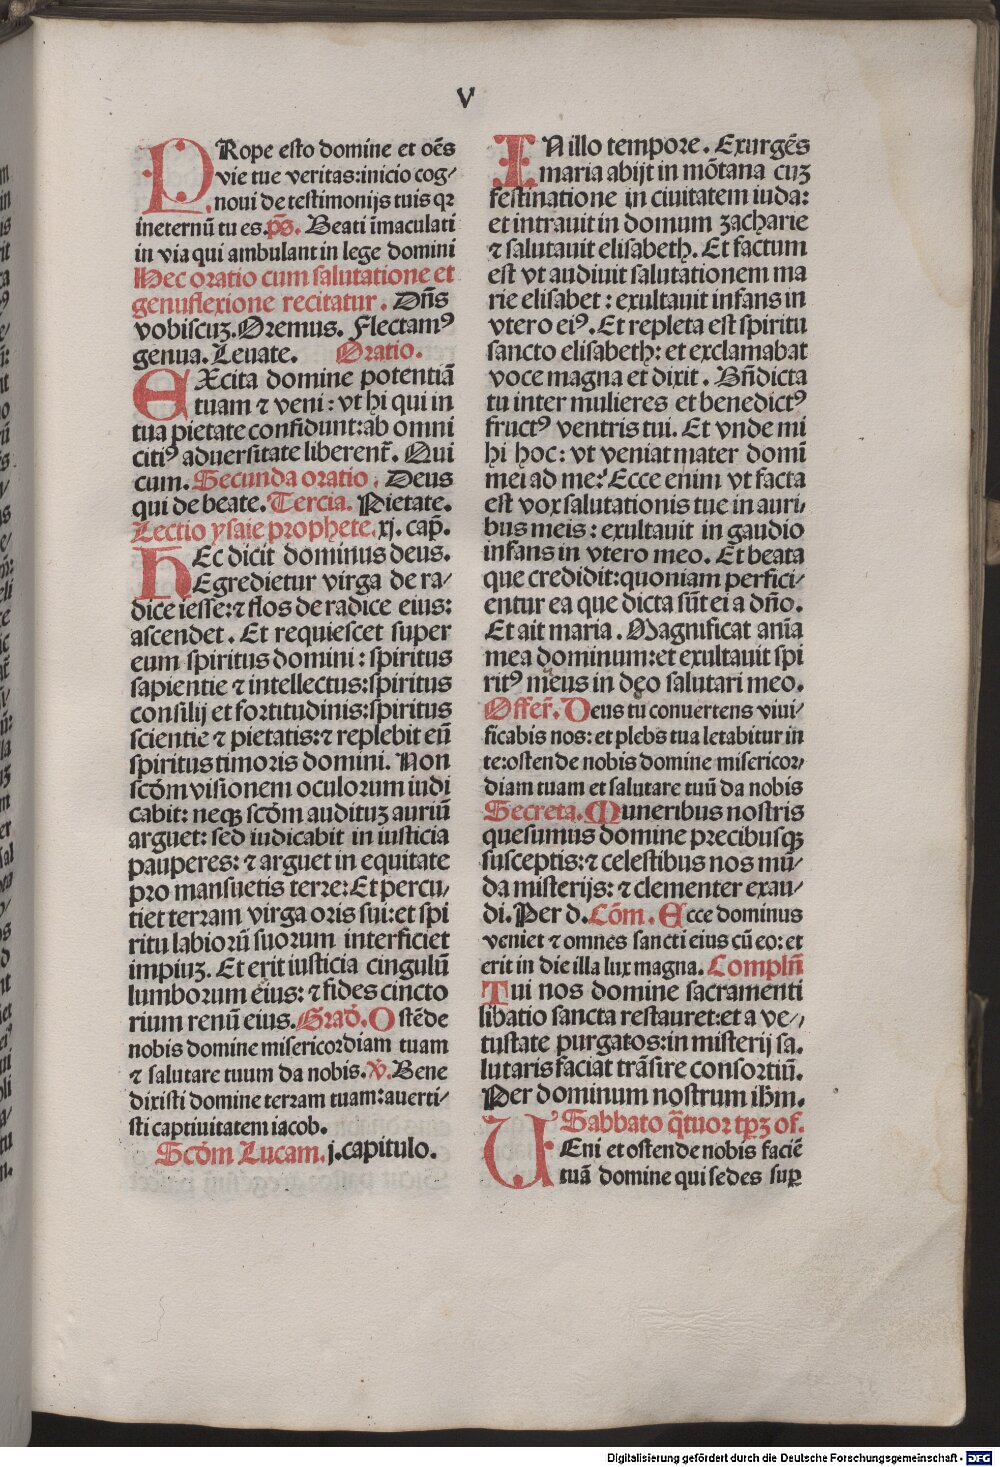 V
PRope esto domine et oēs
vie tue veritas:inicio cog⸗
noui de testimonijs tuis qꝛ
ineternū tu es.p̄s. Beati īmaculati
in via qui ambulant in lege domini
Hec oratio cum salutatione et
genuflexione recitatur. Dn̄s
vobiscuꝫ.Oremus. Flectamꝰ
genua.Leuate. Oratio.
EXcita domine potentiā
tuam ⁊ veni: vt hi qui in
tua pietate confidunt:ab omni
citiꝰ aduersitate liberent᷑. Qui
cum.Secunda oratio. Deus
qui de beate.Tercia. Pietate.
Lectio ysaie prophete.xj. cap̄.
HEc dicit dominus deus.
Egredietur virga de ra⸗
dice iesse:⁊ flos de radice eius:
ascendet. Et requiescet super
eum spiritus domini: spiritus
sapientie ⁊ intellectus:spiritus
consilij et fortitudinis:spiritus
scientie ⁊ pietatis:⁊ replebit eū
spiritus timoris domini. Non
scd̄m visionem oculorum iudi
cabit: neqꝫ scd̄m audituꝫ auriū
arguet: sed iudicabit in iusticia
pauperes: ⁊ arguet in equitate
pro mansuetis terre:Et percu⸗
tiet terram virga oris sui:et spi
ritu labiorū suorum interficiet
impiuꝫ. Et erit iusticia cingulū
lumborum eius: ⁊ fides cincto
rium renū eius.Grad̄. Ostēde
nobis domine misericordiam tuam
⁊ salutare tuum da nobis.v̄. Bene
dixisti domine terram tuam:auerti⸗
sti captiuitatem iacob.
Scd̄m Lucam.j.capitulo.
IN illo tempore. Exurgēs
maria abijt in mōtana cuꝫ
festinatione in ciuitatem iuda:
et intrauit in domum zacharie
⁊ salutauit elisabeth. Et factum
est vt audiuit salutationem ma
rie elisabet: exultauit infans in
vtero eiꝰ. Et repleta est spiritu
sancto elisabeth: et exclamabat
voce magna et dixit. Bn̄dicta
tu inter mulieres et benedictꝰ
fructꝰ ventris tui. Et vnde mi
hi hoc: vt veniat mater domī
mei ad me? Ecce enim vt facta
est vox salutationis tue in auri⸗
bus meis: exultauit in gaudio
infans in vtero meo. Et beata
que credidit:quoniam perfici⸗
entur ea que dicta sūt ei a dn̄o.
Et ait maria. Magnificat anīa
mea dominum:et exultauit spi
ritꝰ meus in deo salutari meo.
Offer̄. Deus tu conuertens viui⸗
ficabis nos: et plebs tua letabitur in
te:ostende nobis domine misericor⸗
diam tuam et salutare tuū da nobis
Secreta. Muneribus nostris
quesumus domine precibusqꝫ
susceptis:⁊ celestibus nos mū⸗
da misterijs: ⁊ clementer exau⸗
di. Per d. Cōm. Ecce dominus
veniet ⁊ omnes sancti eius cū eo: et
erit in die illa lux magna. Compln̄
Tui nos domine sacramenti
libatio sancta restauret:et a ve⸗
tustate purgatos:in misterij sa.
lutaris faciat trāsire consortiū.
Per dominum nostrum ihm̄.
Sabbato q̄tuor tp̄ꝫ of.
VEni et ostende nobis faciē
tuā domine qui sedes suꝑ
Digitalisierung gefördert durch die Deutsche Forschungsgemeinschaft - DFG